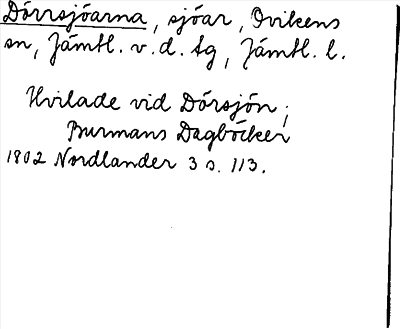 Dörrsjöarna, sjöar, Ovikens
sn, Jämtl. v. d. tg, Jämtl. l.
Hvilade vid Dörsjön;
Burmans Dagböcker
1802 Nordlander 3 s. 113.